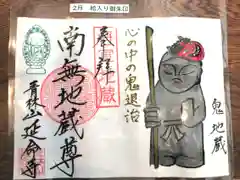 2月 絵入り御朱印
奉拝
南無地蔵尊
青林山延命寺
心の中の鬼退治
鬼地蔵